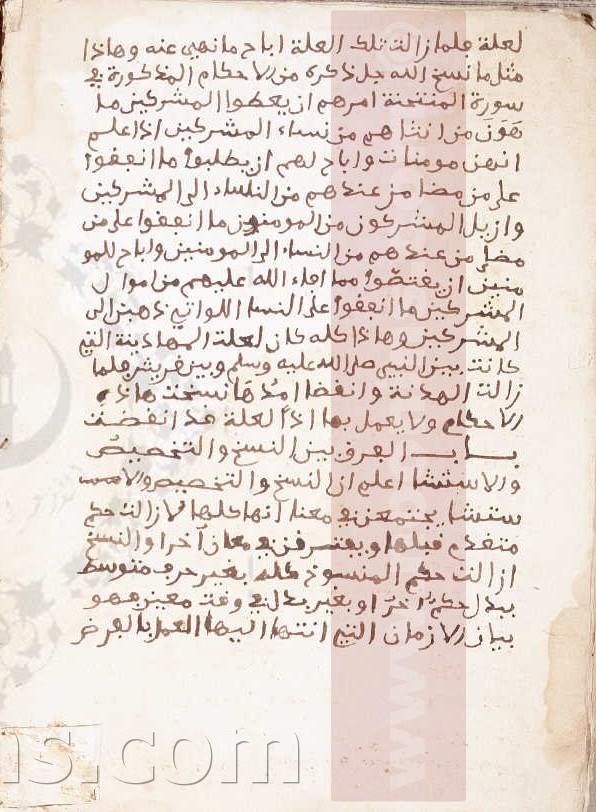 لعلة فلما زالت تلك العلة اباح ما نهى عنه وهاذا
مثل ما نسخ الله جل ذكره من الاحكام المذكورة في
سورة الممتحنة امرهم ان يعطوا المشركين ما
من نساء المشركين اذا علم
انهن مومنات واباح لهم ان يطلبوا ما انفقوا
على من مضا من عندهم من النساء الى المشركين
وازيل المشركون من المومنين ما انفقوا على من
مضا من عندهم من النساء الى المومنين واباح للمو
منين ان مما افاء الله عليهم من اموال
المشركين ما انفقوا على النسا اللواتي ذهبن الى
المشركين وهاذا كله كان لعلت المهادنة التي
كانت بين النبي صلى الله عليه وسلم وبين قريش فلما
زالت الهدنة وانقضا امدها نسخت هاذه
الاحكام ولا يعمل بها اذا لعلة قد انقضت
باب الفرق بين النسخ والتخصيص
والاستثنا اعلم ان النسخ والتخصيص والا
ستثنا يجتمعن في معنا انها كلها لازالت حكم
متقدم قبلها ويفترقن في معان آخر والنسخ
ازالت حكم المنسوخ كله بغير حرف متوسط
ببدل حكم اخر او بغير بدل في وقت معين فهو
بيان الازمان التي انتها اليها العمل بالفرض
ns.com
www